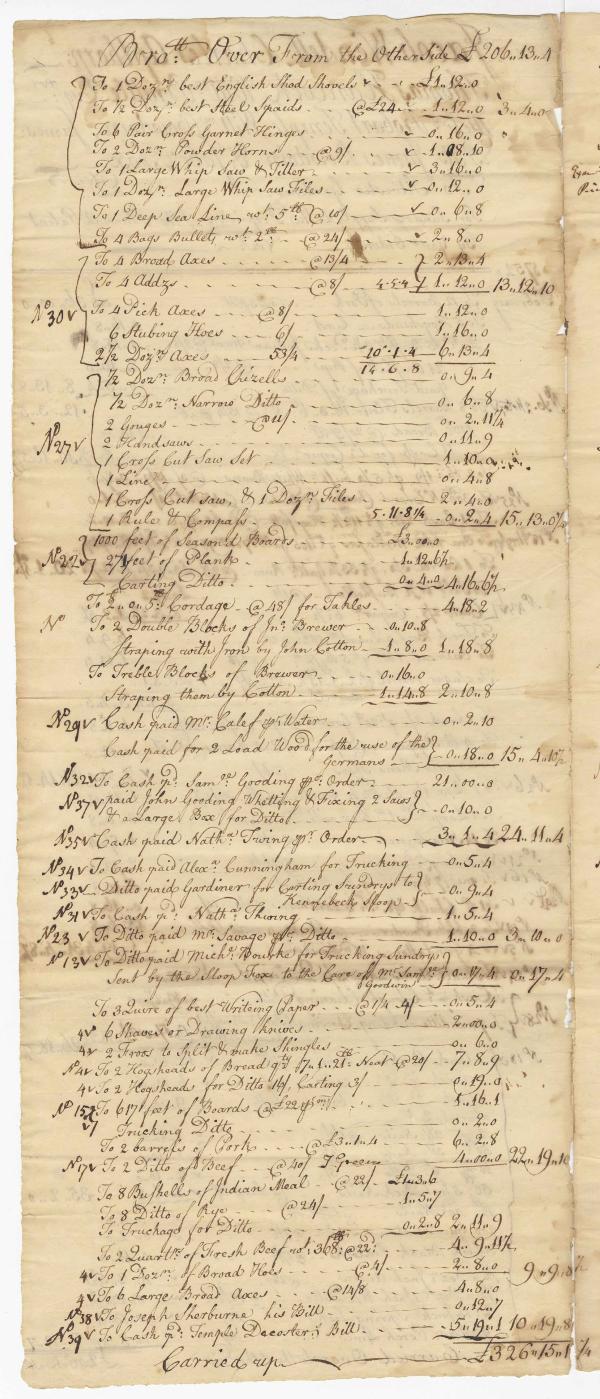 Bro.tt Over From the Other Side £206,,13,,4
To 1 Doz.n best English Shod Shovels £1,,12,,0
To 1/2 Doz.n best Steel Spaids @£24 1,,12,,0 3,,4,,0
To 6 Pair Cross Garnet Hinges 0,,16,,0
To 2 Doz.n Powder Horns @9/ 1,,18,,10
To 1 Large Whip Saw & Tiller 3,,16,,0
To 1 Doz.n Large Whip Saw Files 0,,12,,0
To 1 Deep Sea Line, wt. 5th @10/ 0,,6,,8
To 4 Bags Bullets wt. 2 @24/ 2,,8,,0
To 4 Broad Axes @13/4 2,,13,,4
To 4 Addzs @8/ 4.5.4 1,,12,,0 13,,12,,10
No 30 To 4 Pick Axes @8/ 1,,12,,0
6 Stubing Hoes 6/ 1,,16,,0
2 1/2 Doz.n Axes 53/4 10.1.4 6,,13,,4
14.6.8
1/2 Doz.n Broad Chizells 0,,9,,4
1/2 Doz.n Narrow Ditto 0,,6,,8
2 Gouges 0,,2,,11 1/4
No 27 2 Handsaws 0,,11,,9
1 Cross Cut Saw Set 1,,10,,0
1 Line 0,,4,,8
1 Cross Cut Saw, & 1 Doz.n Files 2,,4,,0
1 Rule & Compass 5.11.8 1/4 0,,2,,4 15,,13,,0 1/4
1000 feet of Season.d Boards £3,,00,,0
No 22 27 feet of Plank 1,,12,,6 1/2
Carting Ditto 0,,4,,0 4,,16,,6 1/2
To Cordage @48/ for Takles 4,,18,,2
No To 2 Double Blocks of Jn.o Brewer 0,,10,,8
Straping with Iron by John Cotton 1,,8,,0 1,,18,,8
To Treble Blocks of Brewer 0,,16,,0
Straping them by Cotton 1,,14,,8 2,,10,,8
No 29 Cash paid Mr. Calef pr. Water 0,,2,,10
Cash paid for 2 Load Wood for the use of the
Germans 0,,18,,0 15,,4,,10 1/2
No 32 To Cash pd. Sam.ll Gooding pr. Order 21,,00,,0
No 37 paid John Gooding Whetting & Fixing 2 Saws
& a Large Box for Ditto 0,,10,,0
No 35 Cash paid Nath.l Twing pr. Order 3,,1,,4 24,,11,,4
No 34 To Cash paid Alex.r Cunningham for Trucking 0,,5,,4
No 33 Ditto paid Gardiner for Carting Sundrys to
Kennebeck Sloop 0,,9,,4
No 31 To Cash pd. Nath.l Thwing 1,,5,,4
No 23 To Ditto paid Mr. Savage pr. Ditto 1,,10,,0 3,,10,,0
No 13 To Ditto paid Mich.l Bourke for Trucking Sundry
Sent by the Sloop Fox to the Care of Mr. Sam.ll
Goodwin 0,,17,,4 0,,17,,4
To 3 Quire of best Writeing Paper @1/4 0,,5,,4
4 6 Shaves or Drawing knives 2,,00,,0
4 2 Froos to Split & make Shingles 0,,6,,0
No 4 To 2 Hogsheads of Bread q.ty 7,,1,,21 Neat @20/ 7,,8,,9
4 To 2 Hogsheads for Ditto 16/, Carting 3/ 0,,19,,0
No 15 To 617 feet of Boards @£22 1,,16,,1
Trucking Ditto 0,,2,,0
To 2 barrels of Pork @£3,,1,,4 6,,2,,8
No 17 To 2 Ditto of Beef @40/ T Green 4,,00,,0 22,,19,,10
To 8 Bushells of Indian Meal @22/ £1,,3,,6
To 8 Ditto of Rye @24/ 1,,5,,7
To Truckage for Ditto 0,,2,,8 2,,11,,9
To 2 Quart.rs of Fresh Beef wt. 368 @22d 4,,9,,11 1/2
4 To 1 Doz.n of Broad Hoes @4/ 2,,8,,0 9,,9,,8 1/2
4 To 6 Large Broad Axes @14/8 4,,8,,0
No 38 To Joseph Sherburne his Bill 0,,12,,7
No 39 To Cash pd. Temple Decoster's Bill 5,,19,,1 10,,19,,8
Carried up £326,,15,,1 1/4